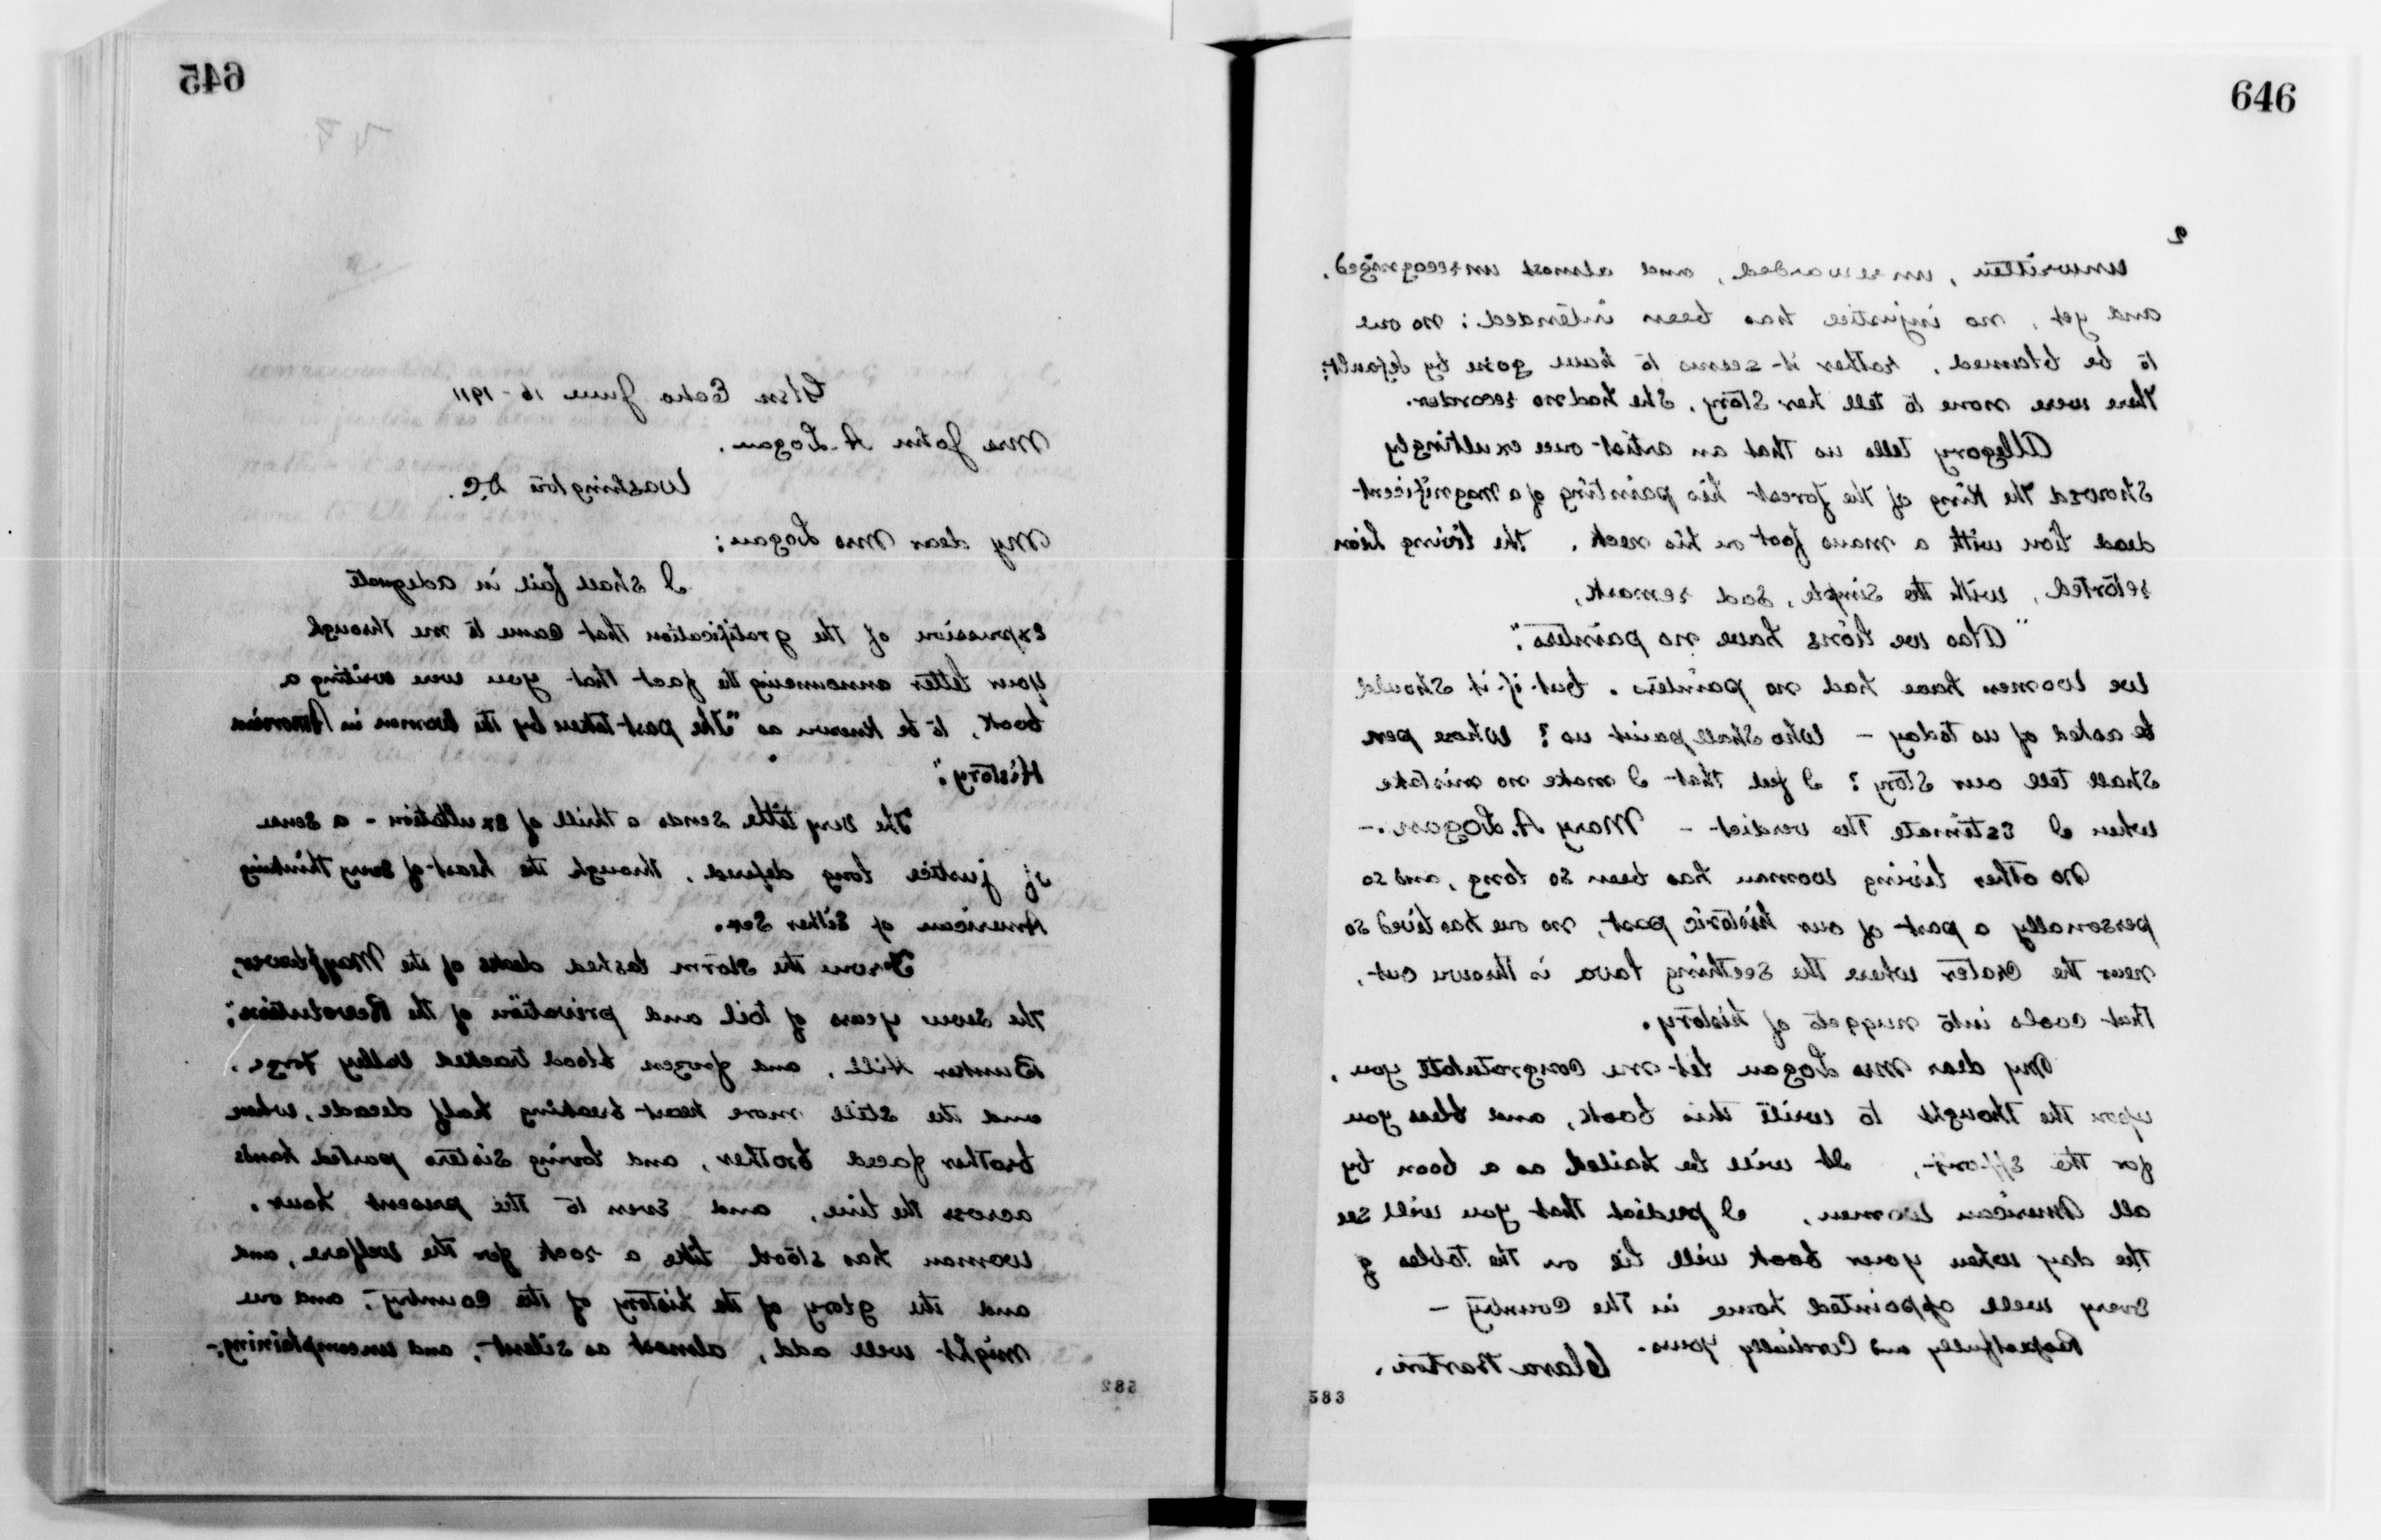 645
Glen Echo June 16-1911
Mrs John A. Logan.
Washington D.C.
My dear Mrs Logan;
I shall fail in adequate
expression of the gratification that came to me through
your letter announcing the fact that you were writing a
book, to be known as "The part taken by the Women in American
History".
The very title sends a thrill of exultation - a sense
of justice long defered, through the heart of every thinking
American of either sex.
From the storm lashed decks of the Mayflower,
the seven years of toil and privation of the Revolution;
Bunker Hill, and frozen blood tracked Valley Forge,
and the still more heart-breaking half decade, when
brother faced brother, and loving sisters parted hands
across the line, and even to the present hour,
woman has stood like a rock for the welfare, and
and the glory of the history of the Country, and one
might well add, almost as silent, and uncomplaining;-
582
646
2
unwritten, unrewarded, and almost unrecognized,
and yet, no injustice has been intended; no one
to be blamed, rather it seems to have gone by default;
there were none to tell her story, she had no recorder.
Allegory tells us that an artist once exultingly
showed the King of the forest his painting of a magnificent
dead lion with a mans foot on his neck. The living lion
retorted, with the simple, sad remark,
"Alas we lions have no painters".
We women have had no painters. but if it should
be asked of us today - Who shall paint us? Whose pen
shall tell our story? I feel that I make no mistake
when I estimate the verdict - Mary A. Logan.-
No other living woman has been so long, and so
personally a part of our historic past, no one has lived so
near the crater where the seething lava is thrown out,
that cools into nuggets of history.
My dear Mrs Logan let me congratulate you,
upon the thought to write this book, and bless you
for the effort, It will be hailed as a boon by
all American Women, I predict that you will see
the day when your book will lie on the tables of
every well appointed home in the Country -
Respectfully and Cordially yours.
Clara Barton.
583